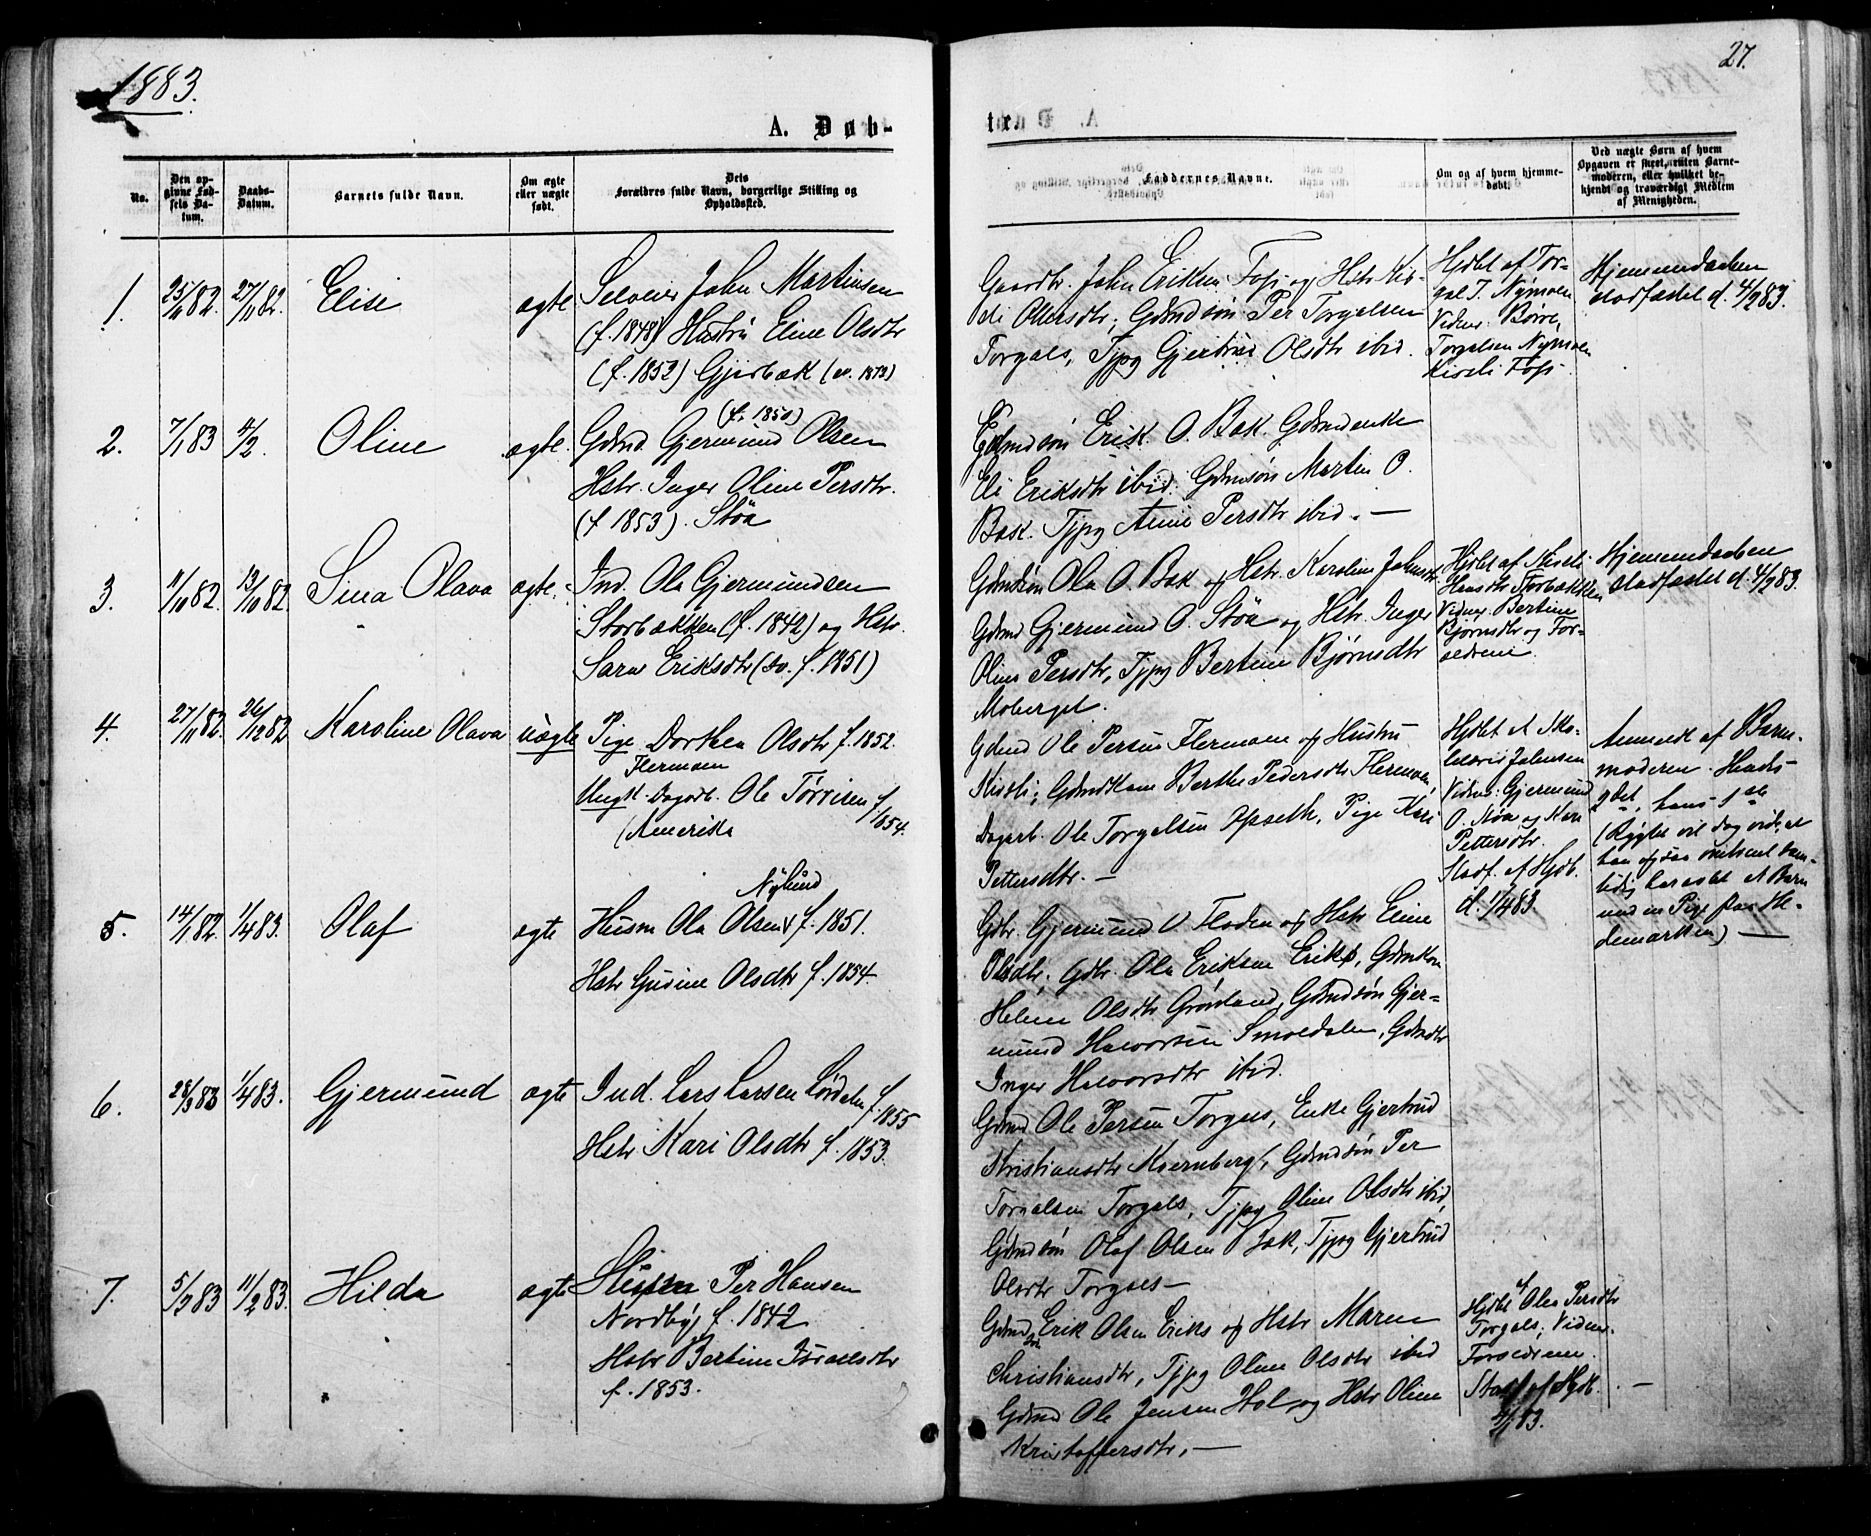 1883.
27.
A. Døb-
te.
No.
Den op-
givne Fød-
sels Da-
tum.
Daabs-
Datum.
Barnets fulde Navn.
Om ægte
eller uægte
født.
Dets
Forældres fulde Navn, borgerlige Stilling og
Opholdssted.
Faddernes Navne.
Om og af hvem hjemme-
døbt.
Ved uægte Børn af hvem
Opgaven er skeet, enten Barne-
moderen, eller hvilket be-
kjendt og troværdigt Medlem
af Menigheden.
1.
25/11 82.
27/11 82.
Elise
ægte
Selveier John Martinsen
(f. 1848) Hustru Eline Olsdtr
(f. 1852) Gjerbæk
Gaardbr. John Eriksen Fos og Hstr Kis-
ti Olersdtr; Gdmdsön Per Torgalsen
Torgals, Tjpg Gjertrud Olsdtr ibid.
Hjdbt af Tor-
gal T. Nymoen
Vidner: Börre
Torgalsen Nymoen
Kisti Fos.
Hjemmedaaben
stadfæstet d. 4/2 83.
2.
7/1 83
4/2.
Oline
ægte.
(f. 1850)
Gdmd. Gjermund Olsen
Hstr. Inger Oline Persdtr.
(f 1853). Støa
Gdmdsön Erik O. Bak. Gdmdenke
Eli Eriksdtr ibid; Gdmdsön Martin O.
Bak. Tjpg Anne Persdtr ibid. —
3.
11/10 82.
13/10 82.
Sina Olava
ægte.
Ind. Ola Gjermundsen
Storbækken (f. 1842) og Hstr.
Sara Eriksdtr (sv. f. 1851)
Gdmdsön Ola O. Bak og Hstr. Karoline Johnsdtr
Gdmd Gjermund O. Støa og Hstr. Inger
Oline Persdtr, Tjpg Bertine Bjørnsdtr
Moberget.
Hjdbt af Kisti
Hansdtr Storbækken
Vidner Bertine
Bjørnsdtr og For-
ældrene.
Hjemmedaaben
stadfæstet d. 4/2 83.
4.
27/11 82.
26/12 82
Karoline Olava
uægte
Pige Dorthea Olsdtr f. 1852.
Flermoen
Ungk. Dagarb. Ole Törrisen f.
1854.
(Amerika
Gdmd Ole Persen Flermoen og Hustru
Kisti; Gdmdkone Berthe Pedersdtr Flermoen,
Dagarb. Ole Torgalsen Opseth, Pige Kari
Pettersdtr. —
Hjdbt af Sko-
lelærer Johnsen
Vidner: Gjermund
O. Støa og Kari
Pettersdtr.
Stadf. af Hjdb.
d. 1/4 83.
Anmeldt af Barne-
moderen. Hendes
2det, hans 1ste
(Rygtet vil dog vide, at
han ogsaa
Barn
med en Pige paa He-
demarken) —
5.
14/1 82.
1/4 83.
Olaf
ægte
Nylund
Husm Ola Olsen f. 1851.
Hstr Gurine Olsdtr f. 1854.
Gdbr. Gjermund O Floden og Hstr Eline
Olsdtr; Gdbr Ola Eriksen Eriks, Gdmkon
Helene Olsdtr Grönland, Gdmdsön Gjer-
mund Halvorsen Smoldalen, Gdmdtr
Inger Halvorsdtr ibid.
6.
28/3 83
1/4 83.
Gjermund
ægte
Ind. Lars Larsen Lördalen f. 1855
Hstr Kari Olsdtr f. 1853.
Gdmd Ole Persen Torgals, Enke Gjertrud
Kristiansdtr Kvernberg, Gdmdsön Per
Torgalsen Torgals, Tjpg Oline Olsdtr ibid,
Gdmdsön Olaf Olsen Bak, Tjpg Gjertrud
Olsdtr Torgals —
7.
5/2 83
11/2 83.
Hilda
ægte
Per Hansen
Nordby, f. 1842
Hstr Bertine Israelsdtr
f. 1853.
Gdmd Erik Olsen Eriks og Hstr Maren
Christiansdtr, Tjpg Oline Olsdtr ibid
Gdmd Ole Jensen Hol og Hstr Oline
Kristoffersdtr. —
Hjdbt af Olea Persdtr
Torgals; Vidner:
Forældrene.
Stadf. af Hjdb.